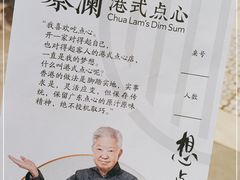 蔡澜港式点心
Chua Lam's Dim Sum
"我喜欢吃点心。
开一家对得起自己，
也对得起客人的港式点心店，
一直是我的梦想。
什么叫港式点心呢？
香港的做法是脚踏实地，实事
求是，灵活应变，但保存传
统，保留广东点心的原汁原味
精神，绝不投机取巧。"
桌号
人数
想点